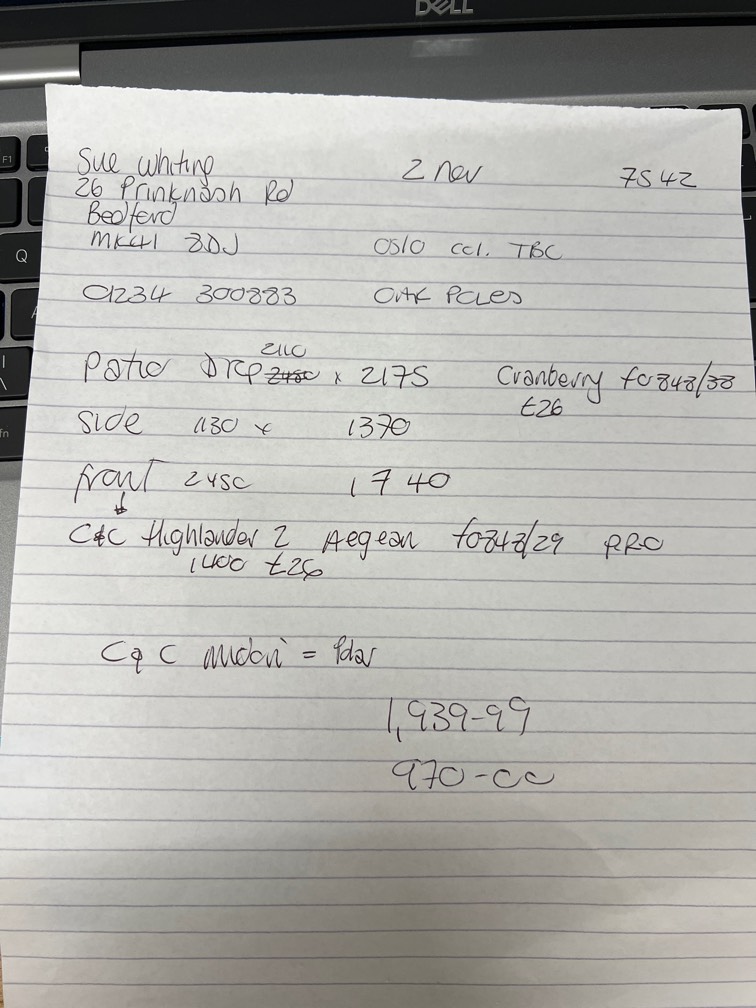 DELL
Sue Whiting 2 nov 7542
26 Prinknash Rd
Bedford
MK41 8DJ Oslo col. TBC
01234 300883 OAK POLES
2110
Patio drop 2450 x 2175 Cranberry f0848/38
t26
side 1130 x 1370
front 2450 1740
C&C Highlander 2 Aegean f0848/29 PRO
1400 t26
C&C =
1,939-99
970-00